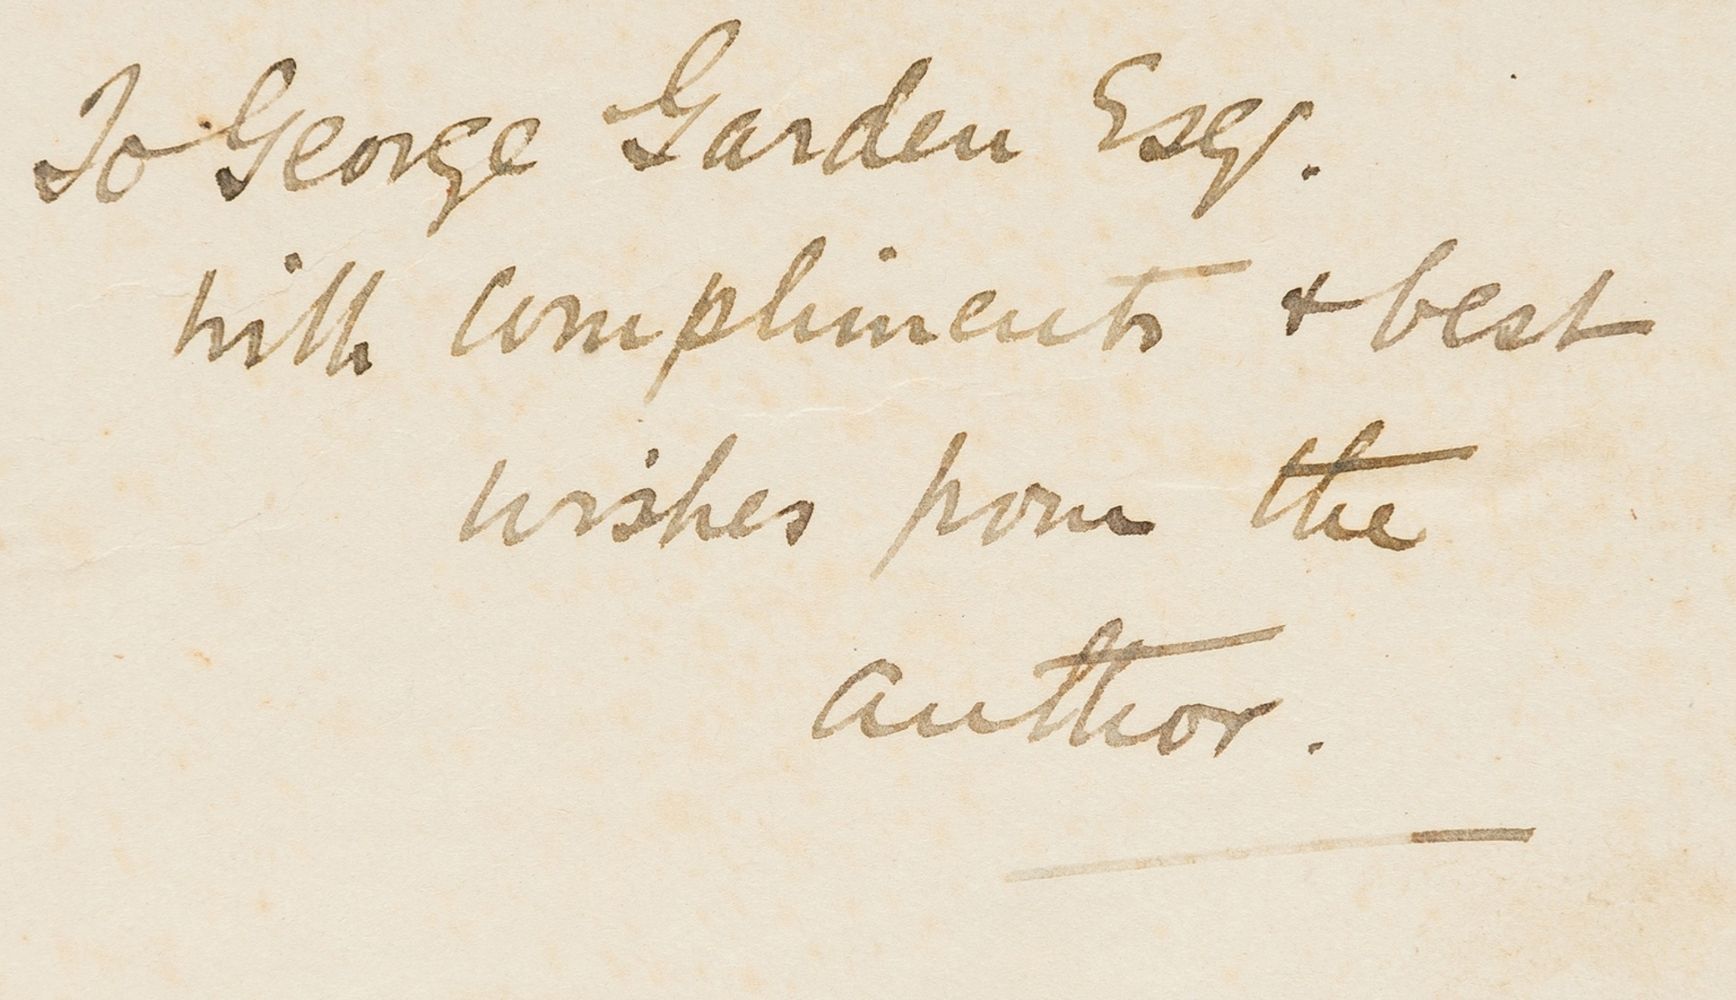 To George Garden Esqr.
with compliments & best
wishes from the
author.